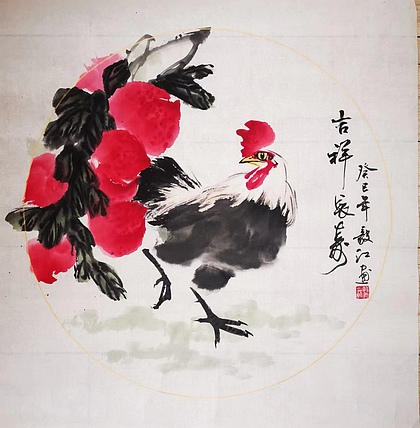 吉祥長壽
癸巳年毅江画